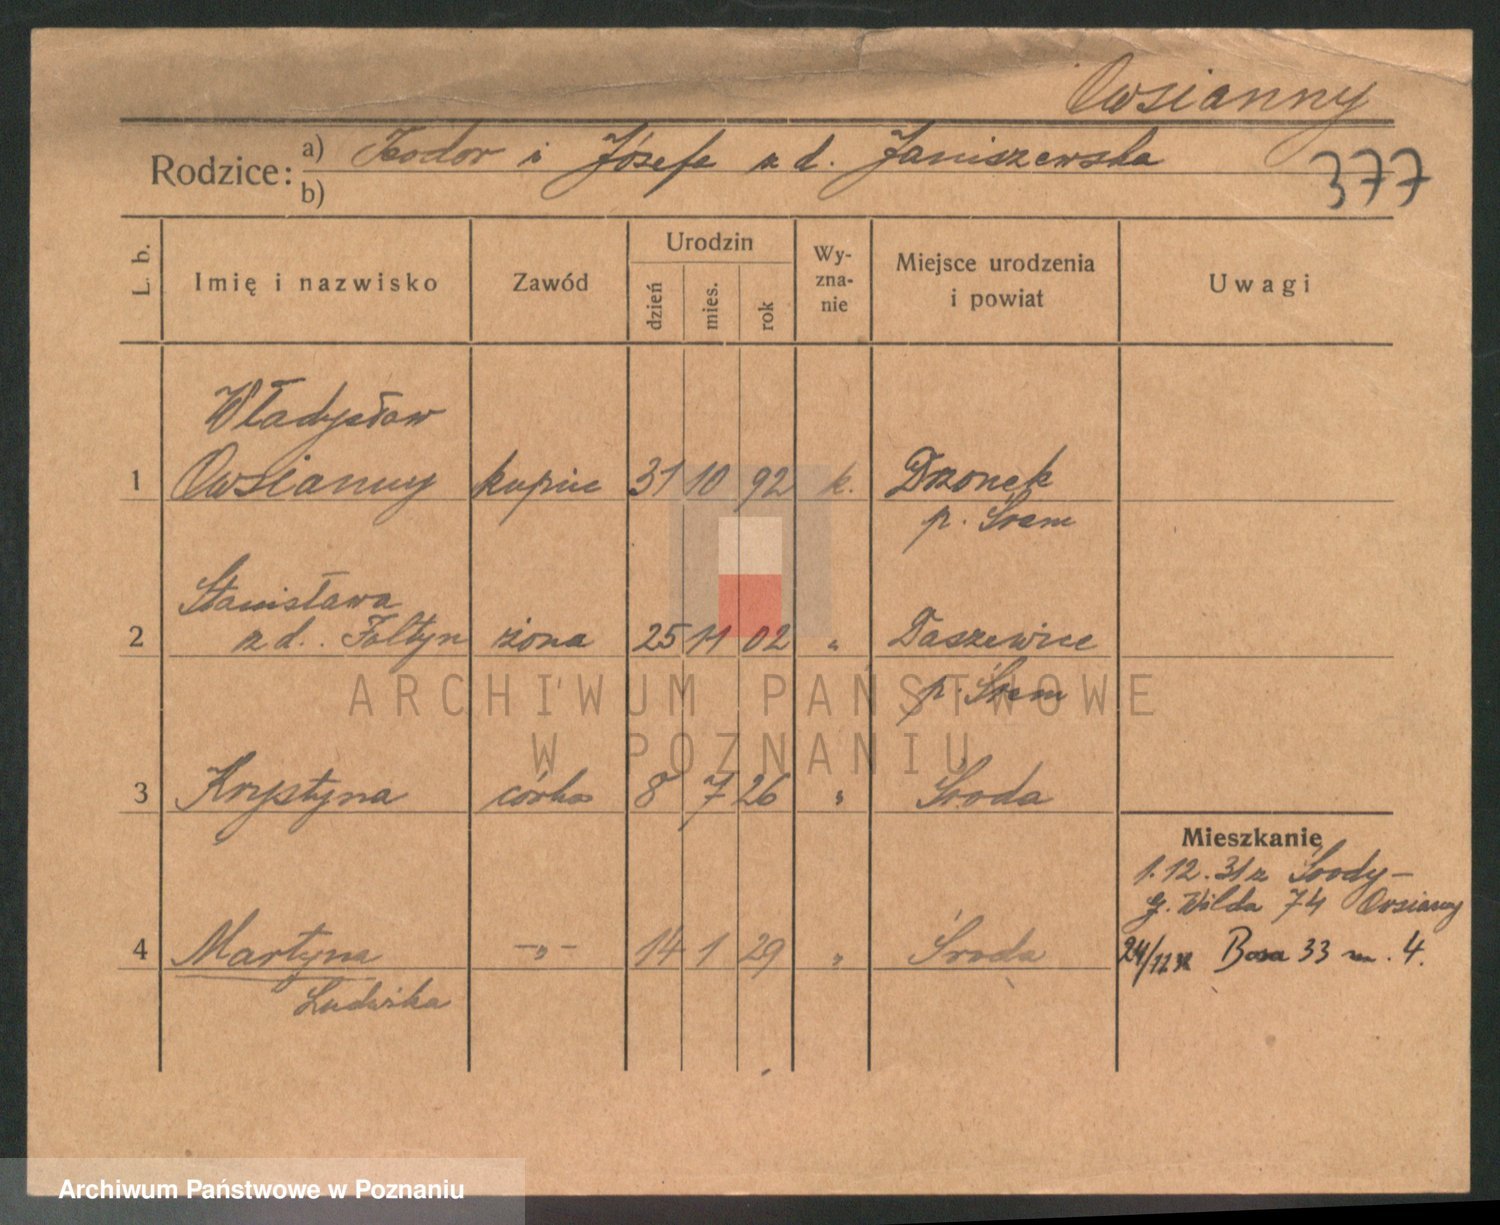 Owsianny
Rodzice: a) Teodor i Józefa z d. Janiszewska
b)
377
L. b.
Imię i nazwisko
Zawód
Urodzin
dzień
mies.
rok
Wy-
zna-
nie
Miejsce urodzenia
i powiat
Uwagi
Władysław
1 Owsianny kupiec 31 10 92 k. Drzonek
p. Śrem
Stanisława
2 z d. Foltyn żona 25 11 02 " Daszewice
p. Śrem
3 Krystyna córka 8 7 26 " Środa
Mieszkanie
1.12.31 z Środy –
g. Wilda 74 Owsianny
4 Martyna –"– 14 1 29 " Środa
24/12 Bosa 33 m. 4.
Ludwika
ARCHIWUM PAŃSTWOWE
W POZNANIU
Archiwum Państwowe w Poznaniu